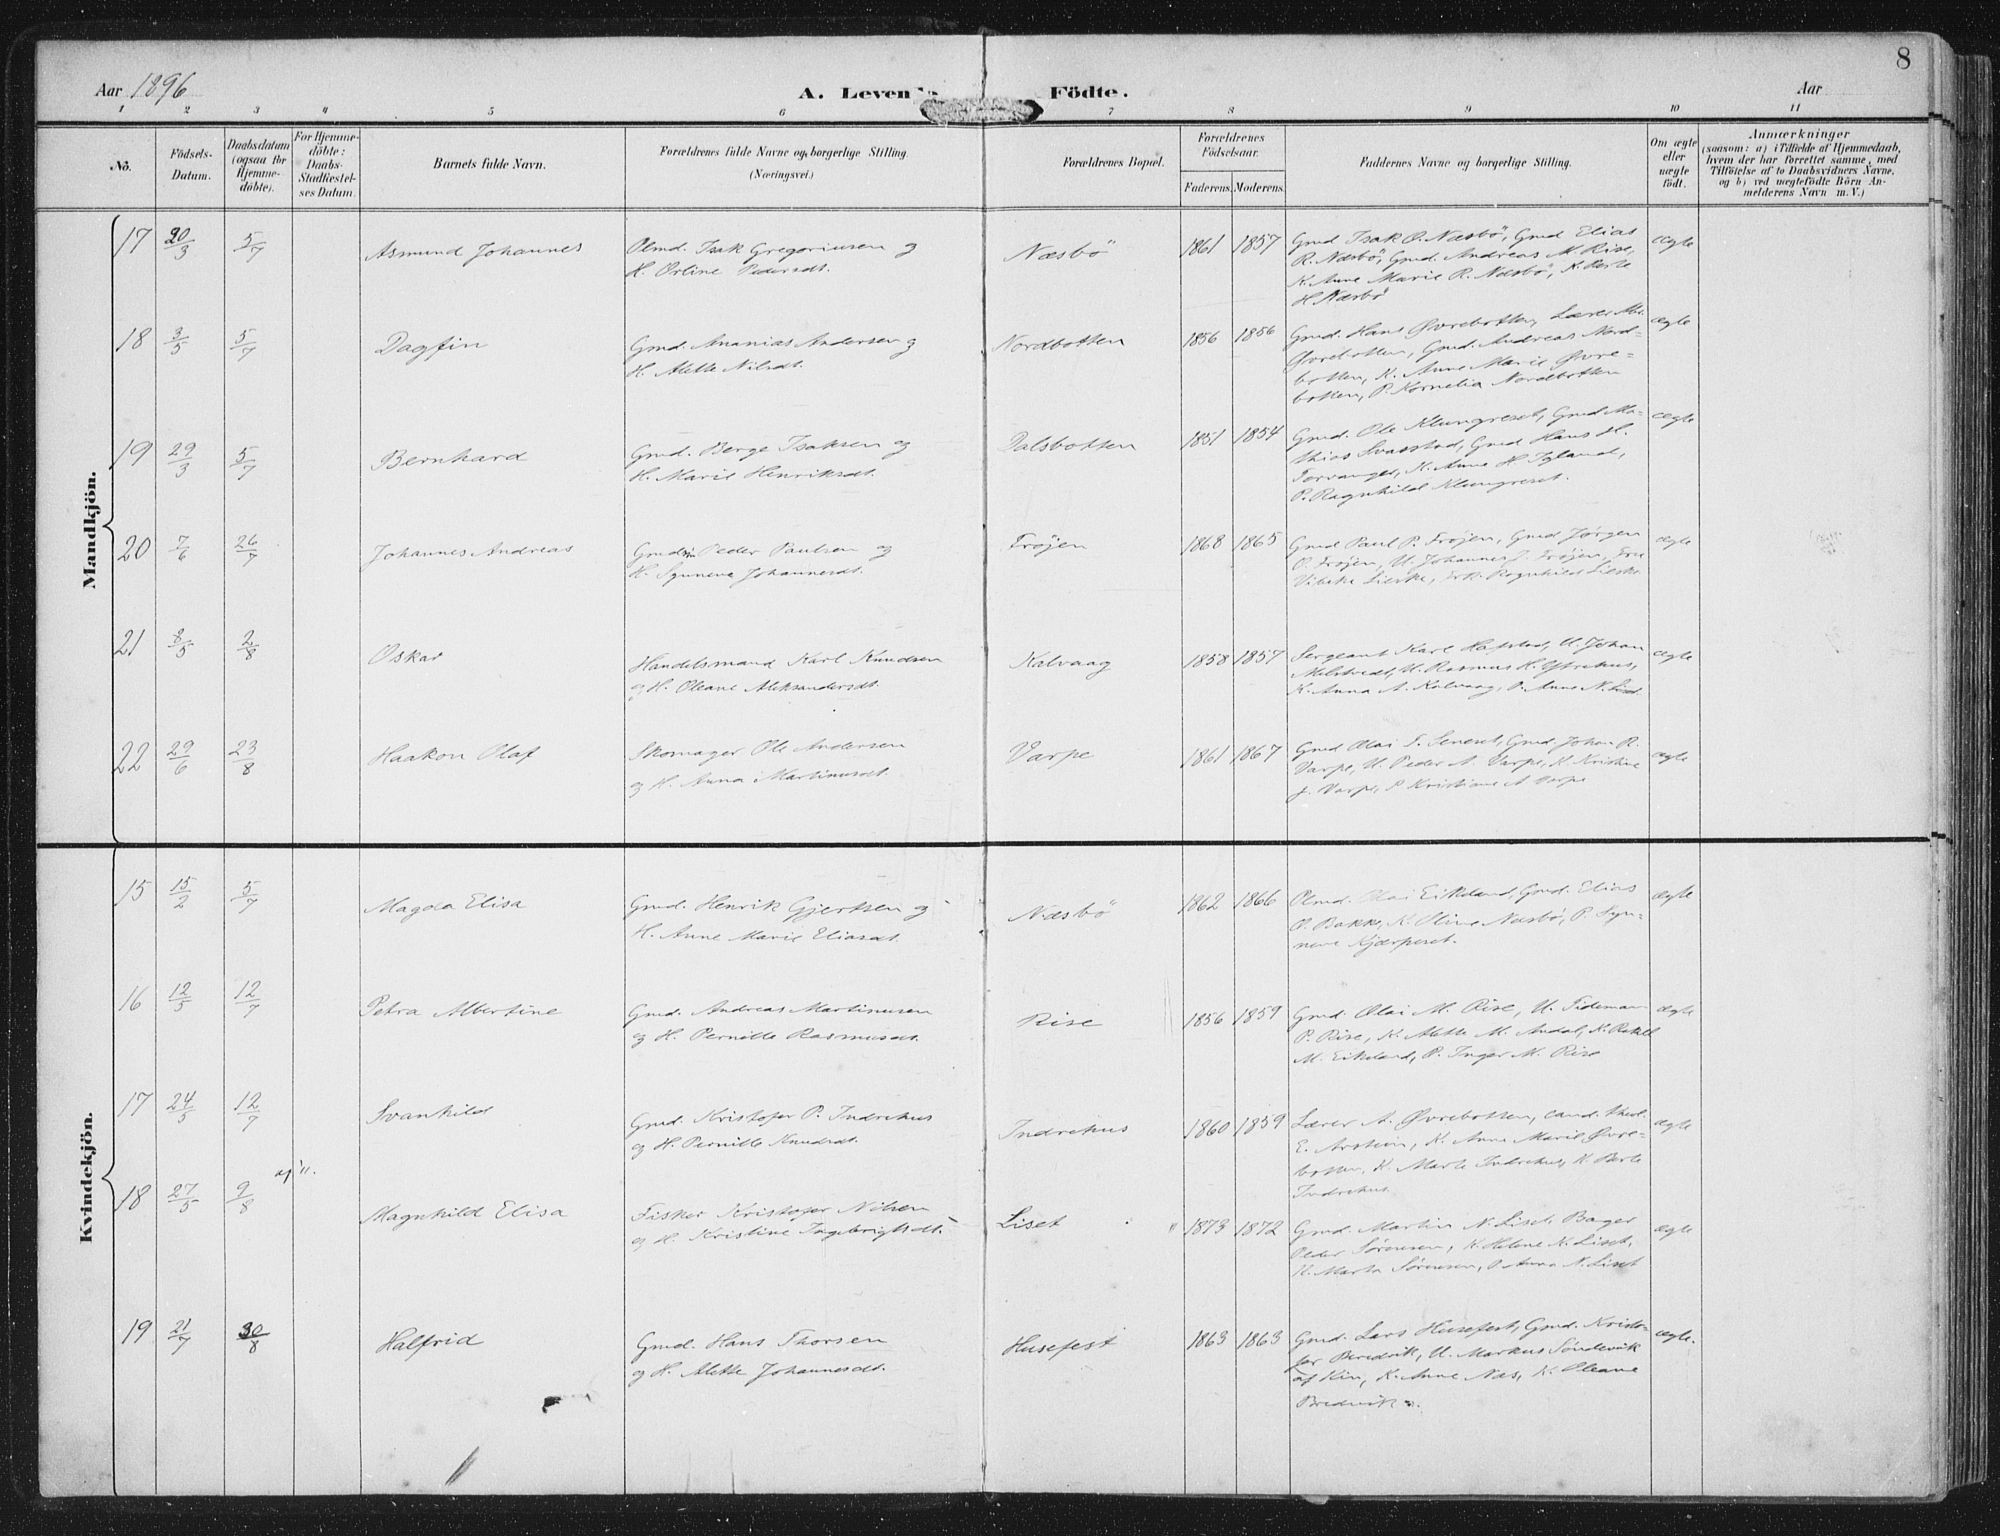 8
Aar 1896 A. Levende Födte. Aar
1 2 3 4 5 6 7 8 9 10 11
No.
Födsels-Datum.
Daabsdatum (ogsaa for Hjemme-döbte).
For Hjemme-döbte: Daabs-Stadfæstel-ses Datum.
Barnets fulde Navn.
Forældrenes fulde Navne og borgerlige Stilling.
(Næringsvei.)
Forældrenes Bopæl.
Forældrenes Födselsaar.
Faderens. Moderens.
Faddernes Navne og borgerlige Stilling.
Om ægte eller uægte födt.
Anmærkninger
(saasom: a) i Tilfælde af Hjemmedaab,
hvem der har forrettet samme, med
Tilföielse af to Daabsvidners Navne,
og b) ved uægtefödte Börn An-
melderens Navn m. V.)
Mandkjön.
17 20/3 5/7 Asmund Johannes
Olmd. Isak Gregoriusen og
H. Orline Pedersdt.
Næsbö 1861 1857
Gmd Isak O. Næsbö, Gmd Elias
R. Næsbö, Gmd. Andreas M. Rise,
K. Anne Marie R. Næsbö, K. Berte
H Næsbö
ægte
18 3/5 5/7 Dagfin
Gmd. Ananias Andersen og
H. Alette Nilsdt.
Nordbotten 1856 1856
Gmd. Hans Øvrebotten, Lærer
Øvrebotten, Gmd. Andreas Nord-
botten, K. Anne Marie Øvre-
botten, P. Kornelia Nordbotten
ægte
19 29/3 5/7 Bernhard
Gmd. Berge Isaksen og
H. Marie Henriksdt.
Dalsbotten 1851 1854
Gmd. Ole Klungreset, Gmd Ma-
thias Svarstad, Gmd Hans H.
Torvanger, K. Anne H Igland,
P. Ragnhild Klungreset.
ægte
20 7/6 26/7 Johannes Andreas
Gmdsn Peder Paulsen og
H. Synneva Johannesdt.
Fröjen 1868 1865
Gmd Paul P. Fröjen, Gmd Jörgen
O. Fröjen, U. Johannes J. Fröjen,
Vibeke Leeske, Ragnhild
ægte
21 8/5 2/8 Oskar
Handelsmand Karl Knudsen
og H. Oleane Aleksandersdt.
Kalvaag 1858 1857
Sergeant Karl Hafstad, U. Johan
U. Rasmus H. Ystrehus,
K. Anna A. Kalvaag, P. Anne N. Liset
ægte
22 29/6 23/8 Haakon Olaf
Skomager Ole Andersen
og H. Anna Martinusdt.
Varpe 1861 1867
Gmd Olai T. Seneset, Gmd. Johan R.
Varpe, U. Peder A. Varpe, K Kristine
J. Varpe, P Kristiane A Varpe
ægte
Kvindekjön.
15 15/2 5/7 Magda Elisa
Gmd. Henrik Gjertsen og
H. Anne Marie Eliasdt.
Næsbö 1862 1866
Olmd. Olai Eikeland, Gmd. Elias
O. Bakke, K. Oline Næsbö, P. Syn-
neve Kjærpeset.
ægte
16 12/5 12/7 Petra Albertine
Gmd. Andreas Martinusen
og H. Pernille Rasmusdt.
Rise 1856 1859
Gmd. Olai M. Rise, U. Tideman
P. Rise, K. Alette M. Andal, K. Rakel
M. Eikeland, P. Inger M. Rise
ægte
17 24/5 12/7 Svanhild
Gmd. Kristofer P. Indrehus
og H. Pernille Knudsdt.
Indrehus 1860 1859
Lærer A. Øvrebotten, cand. theol.
E. Arstein, K. Anne Marie Øvre-
botten, K. Marte Indrehus, K Berte
Indrehus
ægte
18 27/5 9/8 Magnhild Elisa
Fisker Kristofer Nilsen
og H. Kristine Ingebrigtsdt.
Liset 1873 1872
Gmd. Martin N. Liset, Bager
Peder Sörensen, K. Helene N. Liset,
K. Marta Sörensen, P Anna N. Liset
ægte
19 21/7 30/8 Halfrid
Gmd. Hans Thorsen
og H. Alette Johannesdt.
Husefest 1863 1863
Gmd. Lars Husefest, Gmd. Kristo-
fer Bredvik, U. Markus Söndevik
af Kin, K. Anne Næs, K. Oleane
Bredvik
ægte.